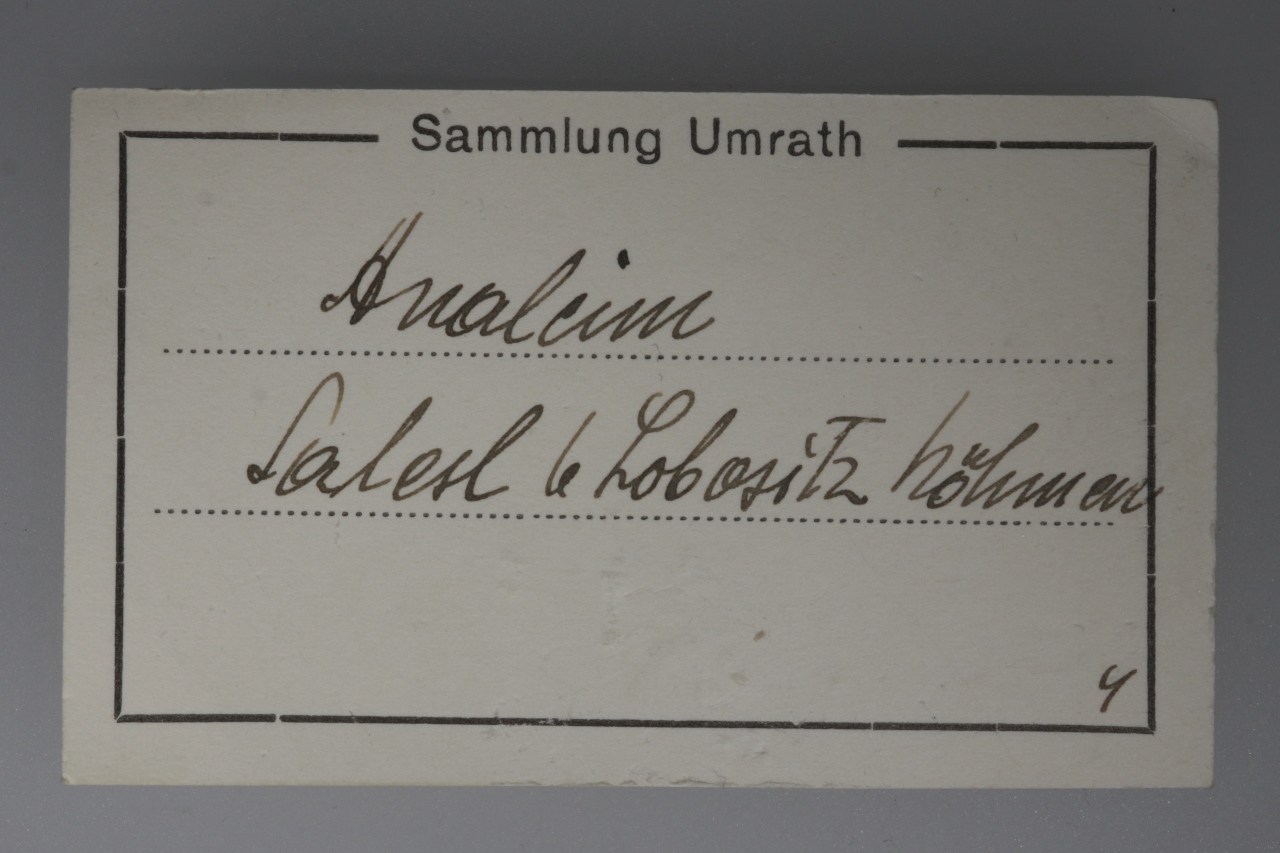 Sammlung Umrath
Analcim
Salesl b Lobositz Böhmen
4